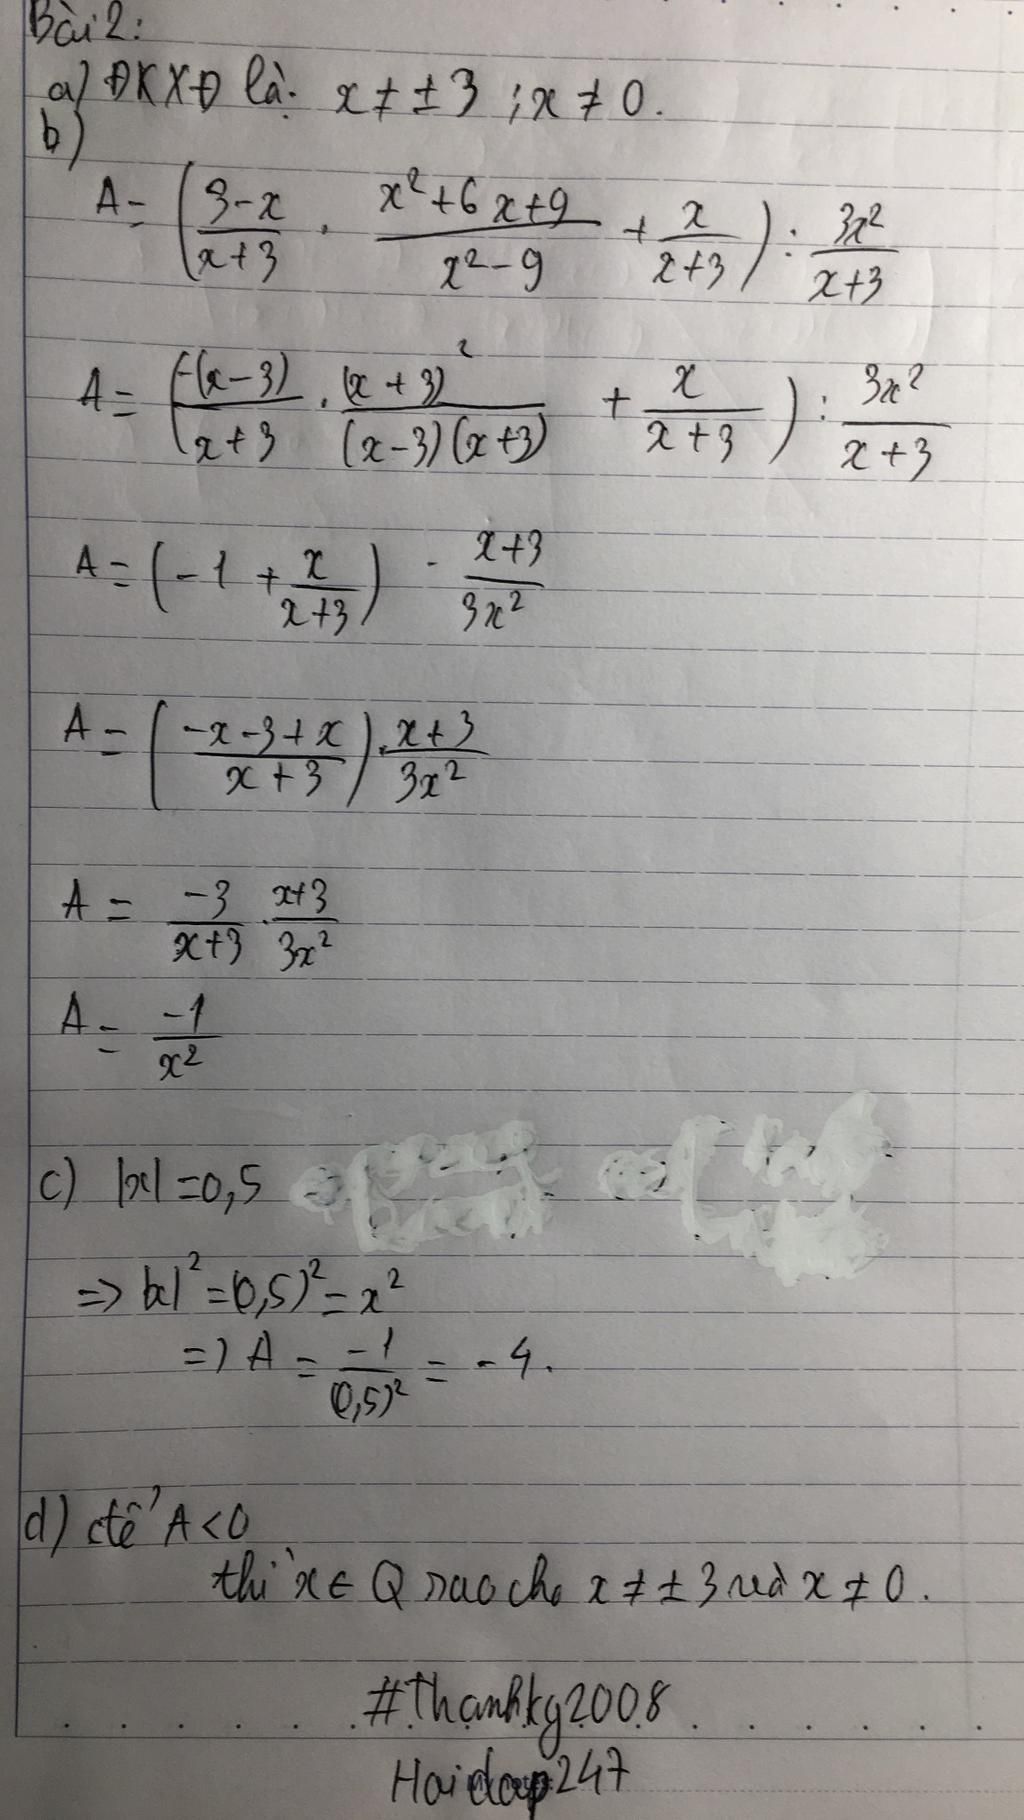 Bài 2:
a) ĐKXĐ là: x ≠ ±3 ; x ≠ 0.
b)
A = ( (3-x)/(x+3) . (x²+6x+9)/(x²-9) + x/(x+3) ) : 3x²/(x+3)
A = ( -(x-3)/(x+3) . (x+3)²/((x-3)(x+3)) + x/(x+3) ) : 3x²/(x+3)
A = ( -1 + x/(x+3) ) . (x+3)/3x²
A = ( (-x-3+x)/(x+3) ) . (x+3)/3x²
A = -3/(x+3) . (x+3)/3x²
A = -1/x²
c) |x| = 0,5
=> |x|² = (0,5)² = x²
=> A = -1/(0,5)² = -4.
d) Để A < 0
thì x ∈ Q sao cho x ≠ ±3 và x ≠ 0.
#Thanhkg2008
Hoidap247